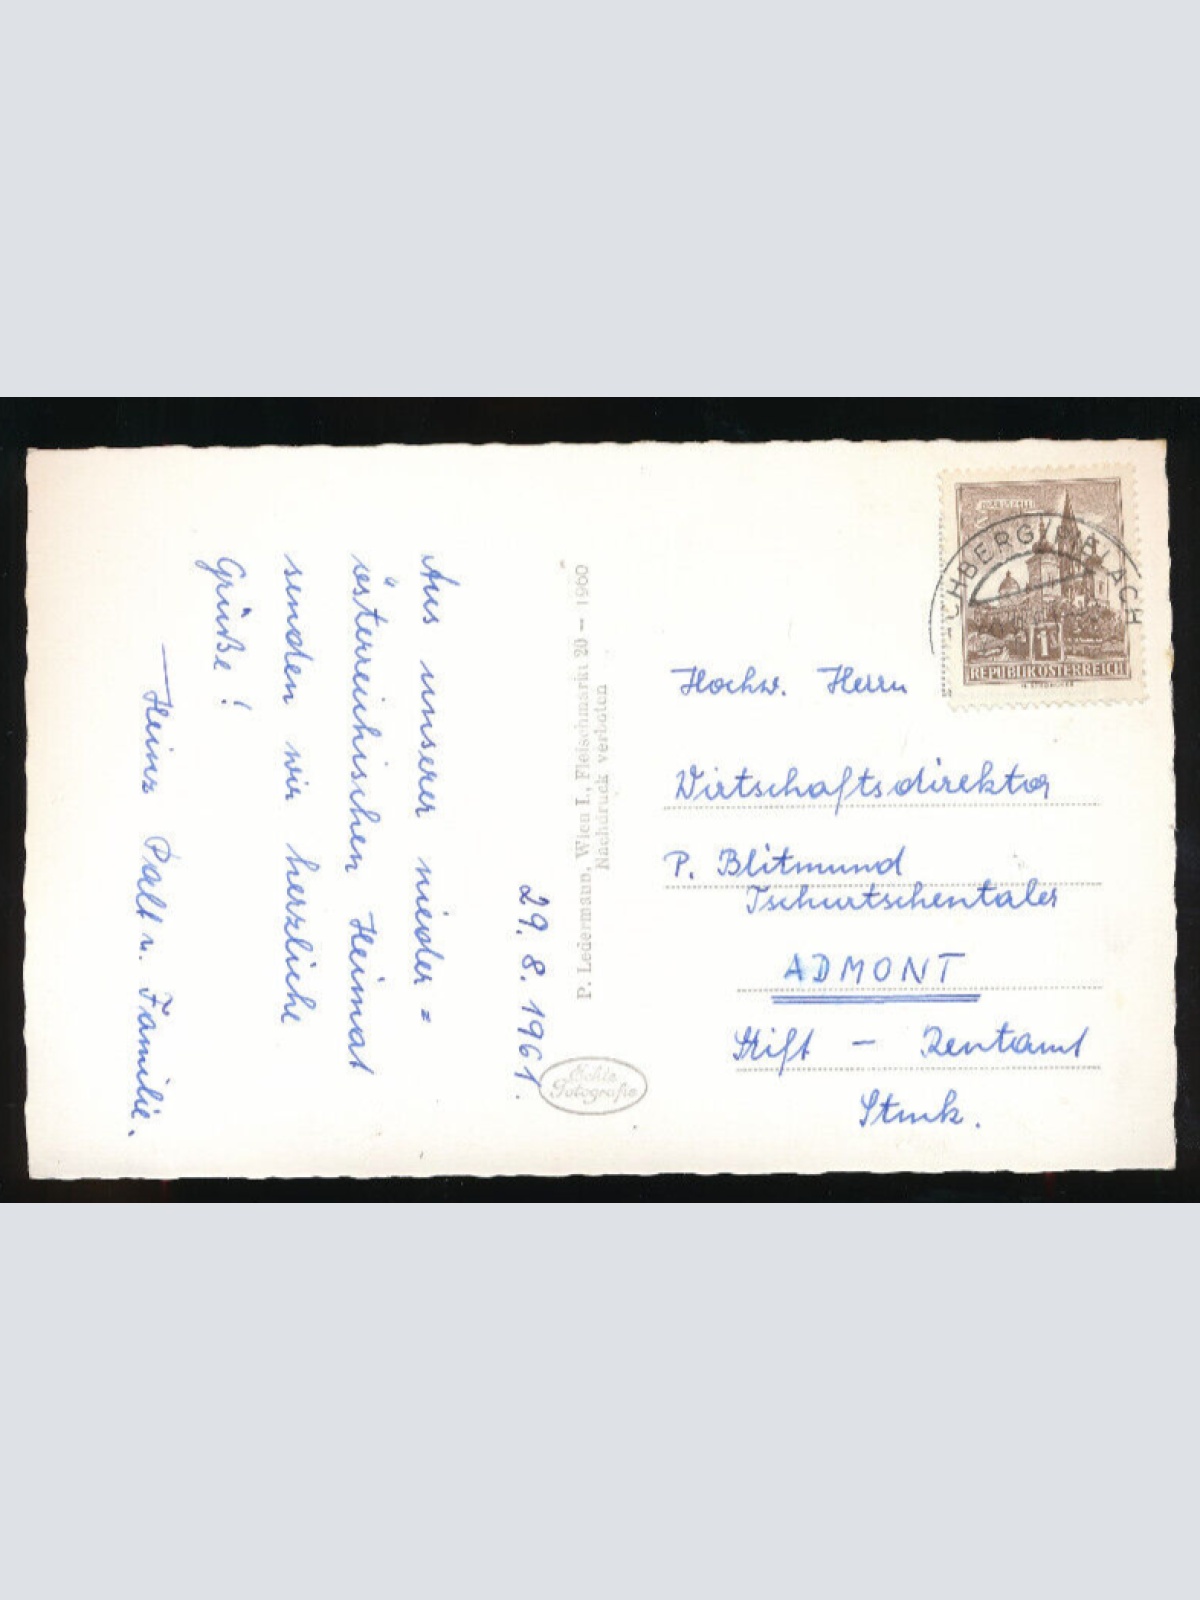 29. 8. 1961.
Aus unserer nieder=
österreichischen Heimat
senden wir herzliche
Grüße!
— Heinz Palt u. Familie.
P. Ledermann, Wien I., Fleischmarkt 20 — 1960
Nachdruck verboten
Echte
Fotografie
CHBERG
LACH
1
REPUBLIK ÖSTERREICH
Hochw. Herrn
Wirtschaftsdirektor
P. Blitmund
Tschurtschentaler
ADMONT
Stift — Rentamt
Stmk.